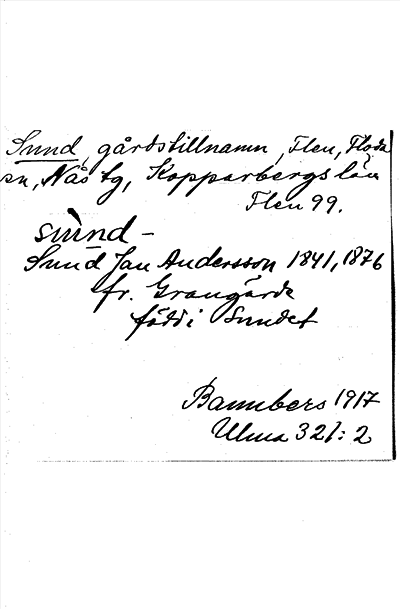 Sund, gårdstillnamn, Flen, Floda
sn, Nås tg, Kopparbergs län
Flen 99.
sùnd –
Sund Jan Andersson 1841, 1876
fr. Grangärde
född i Sundet
Bannbers 1917
Ulma 321:2